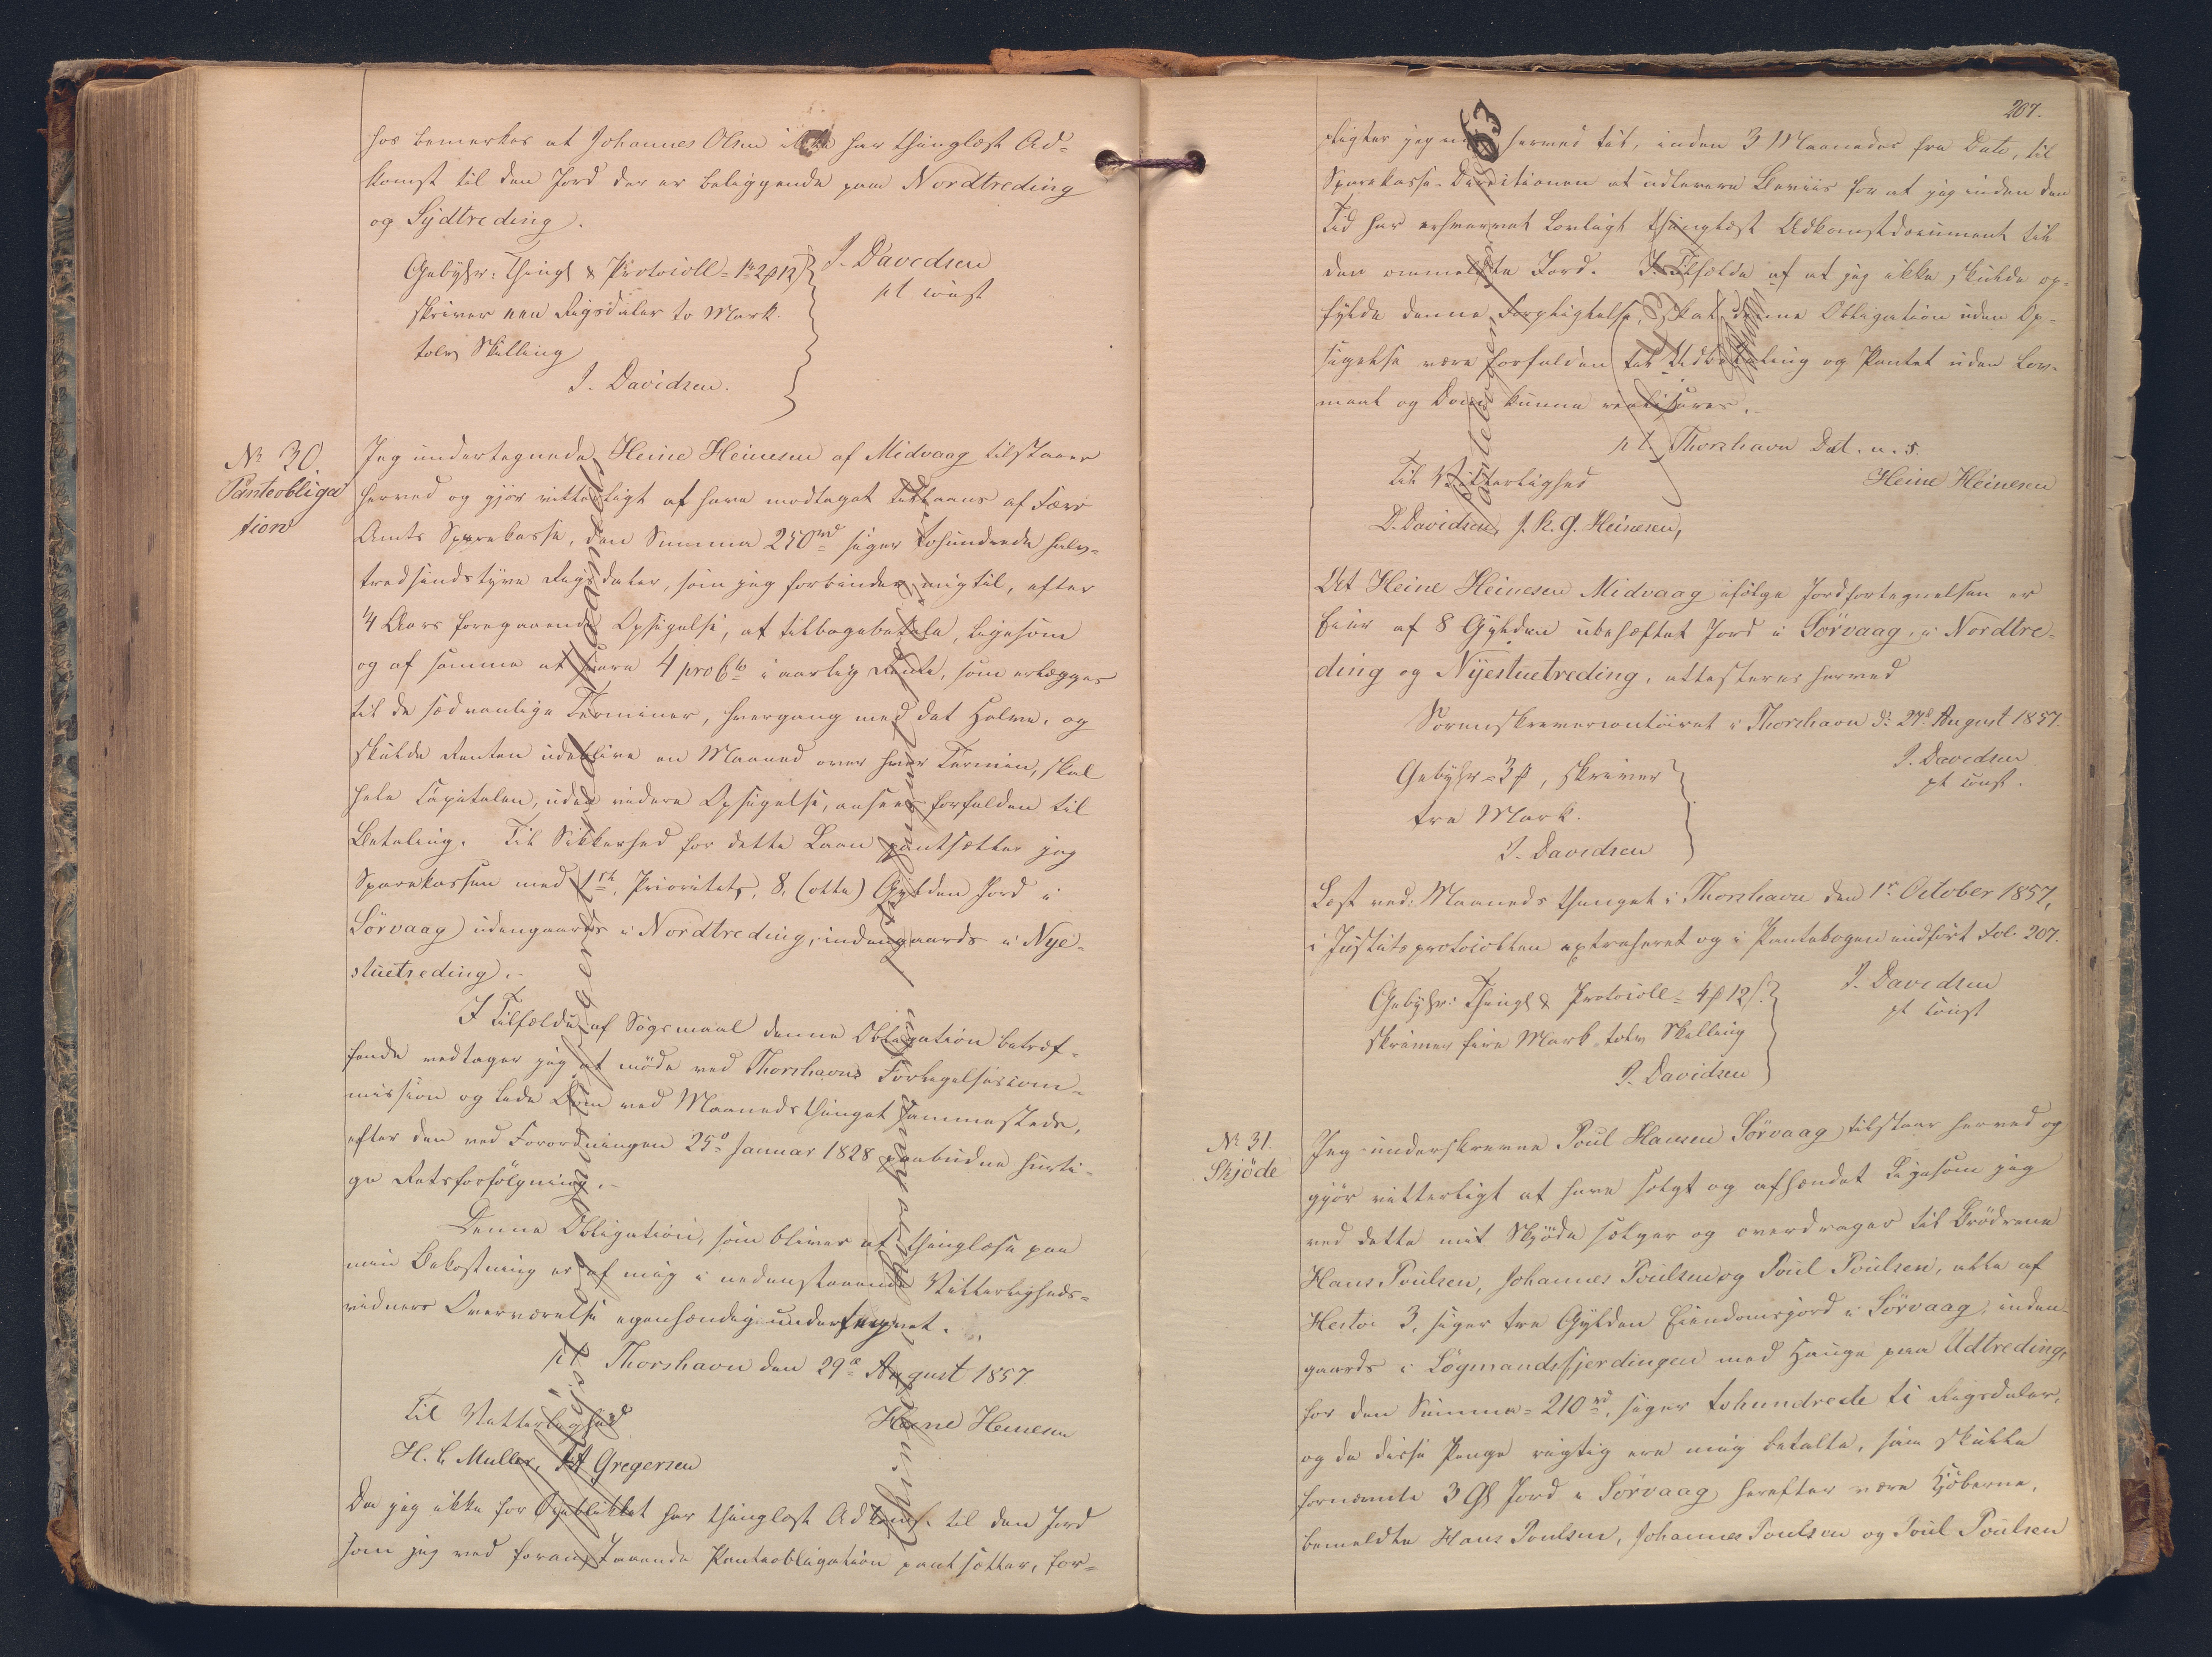 hos bemerkes at Johannes Olsen ikke har thinglæst Ad-
komst til den Jord der er beliggende paa Nordtreding
og Sydtreding.
Gebyhr: Thingl & Protocoll = 1rd 2 p 12 s
J. Davidsen
pt const
skriver een Rigsdaler to Mark
tolv Skilling
J. Davidsen.
No 30.
Panteobliga
tion
Jeg undertegnede Heine Heinesen af Midvaag tilstaaer
herved og gjør vitterligt at have modtaget tillaans af Færø
Amts Sparekasse, den Summa 250rd siger tohundrede halv-
tredsindstyve Rigsdaler, som jeg forbinder mig til, efter
1/4 Aars foregaaende Opsigelse, at tilbagebetale, ligesom
og af samme at svare 4 pro Cto i aarlig Rente, som erlægges
til de sædvanlige Terminer, hvergang med det Halve, og
skulde Renten udeblive en Maaned over hver Termin, skal
hele Capitalen, uden videre Opsigelse, ansees forfalden til
Betaling. Til Sikkerhed for dette Laan pantsætter jeg
Sparekassen med 1ste Prioritets, 8, (otte) Gylden Jord i
Sörvaag udengaards i Nordtreding, indengaards i Nye-
stuetreding.
I Tilfælde af Søgsmaal denne Obligation betræf-
fende vedtager jeg at møde ved Thorshavns Forligelsescom-
mission og lide Dom ved Maanedsthinget sammestede,
efter den ved Forordningen 25de Januar 1828 paabudne hurti-
ge Retsforfølgning.
Denne Obligation, som bliver at thinglæse paa
min Bekostning er af mig i nedenstaaende Vitterligheds-
vidners Overværelse egenhændig undertegnet.
pt Thorshavn den 29de August 1857
Til Vitterlighed
Heine Heinesen
H. C. Muller, Gregersen
Da jeg ikke for Øieblikket har thinglæst Adkomst til den Jord
som jeg ved foranstaaende Panteobligation pantsætter, for-
207.
pligter jeg mig herved til, inden 3 Maaneder fra Dato, til
Sparekasse-Directionen at udlevere Beviis for at jeg inden den
Tid har erhvervet lovligt thinglæst Adkomstdocument til
den ommeldte Jord. I Tilfælde af at jeg ikke skulde op-
fylde denne Forpligtelse, skal denne Obligation uden Op-
sigelse være forfalden til Udbetaling og Pantet uden Lov-
maal og Dom kunne realiseres.
pt Thorshavn Dat. u. s.
Til Vitterlighed
Heine Heinesen
D. Davidsen, J. K. G. Heinesen,
At Heine Heinesen Midvaag ifølge Jordfortegnelsen er
Eier af 8 Gylden ubehæftet Jord i Sörvaag, i Nordtre-
ding og Nyestuetreding, attesteres herved
Sorenskrivercontoiret i Thorshavn d. 27de August 1857.
J. Davidsen
pt const.
Gebyhr = 3 p, skriver
tre Mark.
J. Davidsen
Læst ved Maanedsthinget i Thorshavn den 1ste October 1857,
i Justitsprotocollen extraheret og i Pantebogen indført Fol. 207.
J. Davidsen
pt const
Gebyhr: Thingl & Protocoll = 4 p 12 s.
skriver fire Mark tolv Skilling
J. Davidsen
No 31.
Skjöde
Jeg underskrevne Poul Hansen Sörvaag tilstaaer herved og
gjør vitterligt at have solgt og afhændet ligesom jeg
ved dette mit Skjøde sælger og overdrager til Brødrene
Hans Poulsen, Johannes Poulsen og Poul Poulsen, alle af
Hestoe 3, siger tre Gylden Eiendomsjord i Sörvaag, inden-
gaards i Lögmandsfjerdingen med Hauge paa Udtreding,
for den Summa = 210rd, siger tohundrede ti Rigsdaler,
og da disse Penge rigtig ere mig betalte, saa skulle
fornævnte 3 Gl Jord i Sörvaag herefter være Kjøberne,
bemeldte Hans Poulsen, Johannes Poulsen og Poul Poulsen